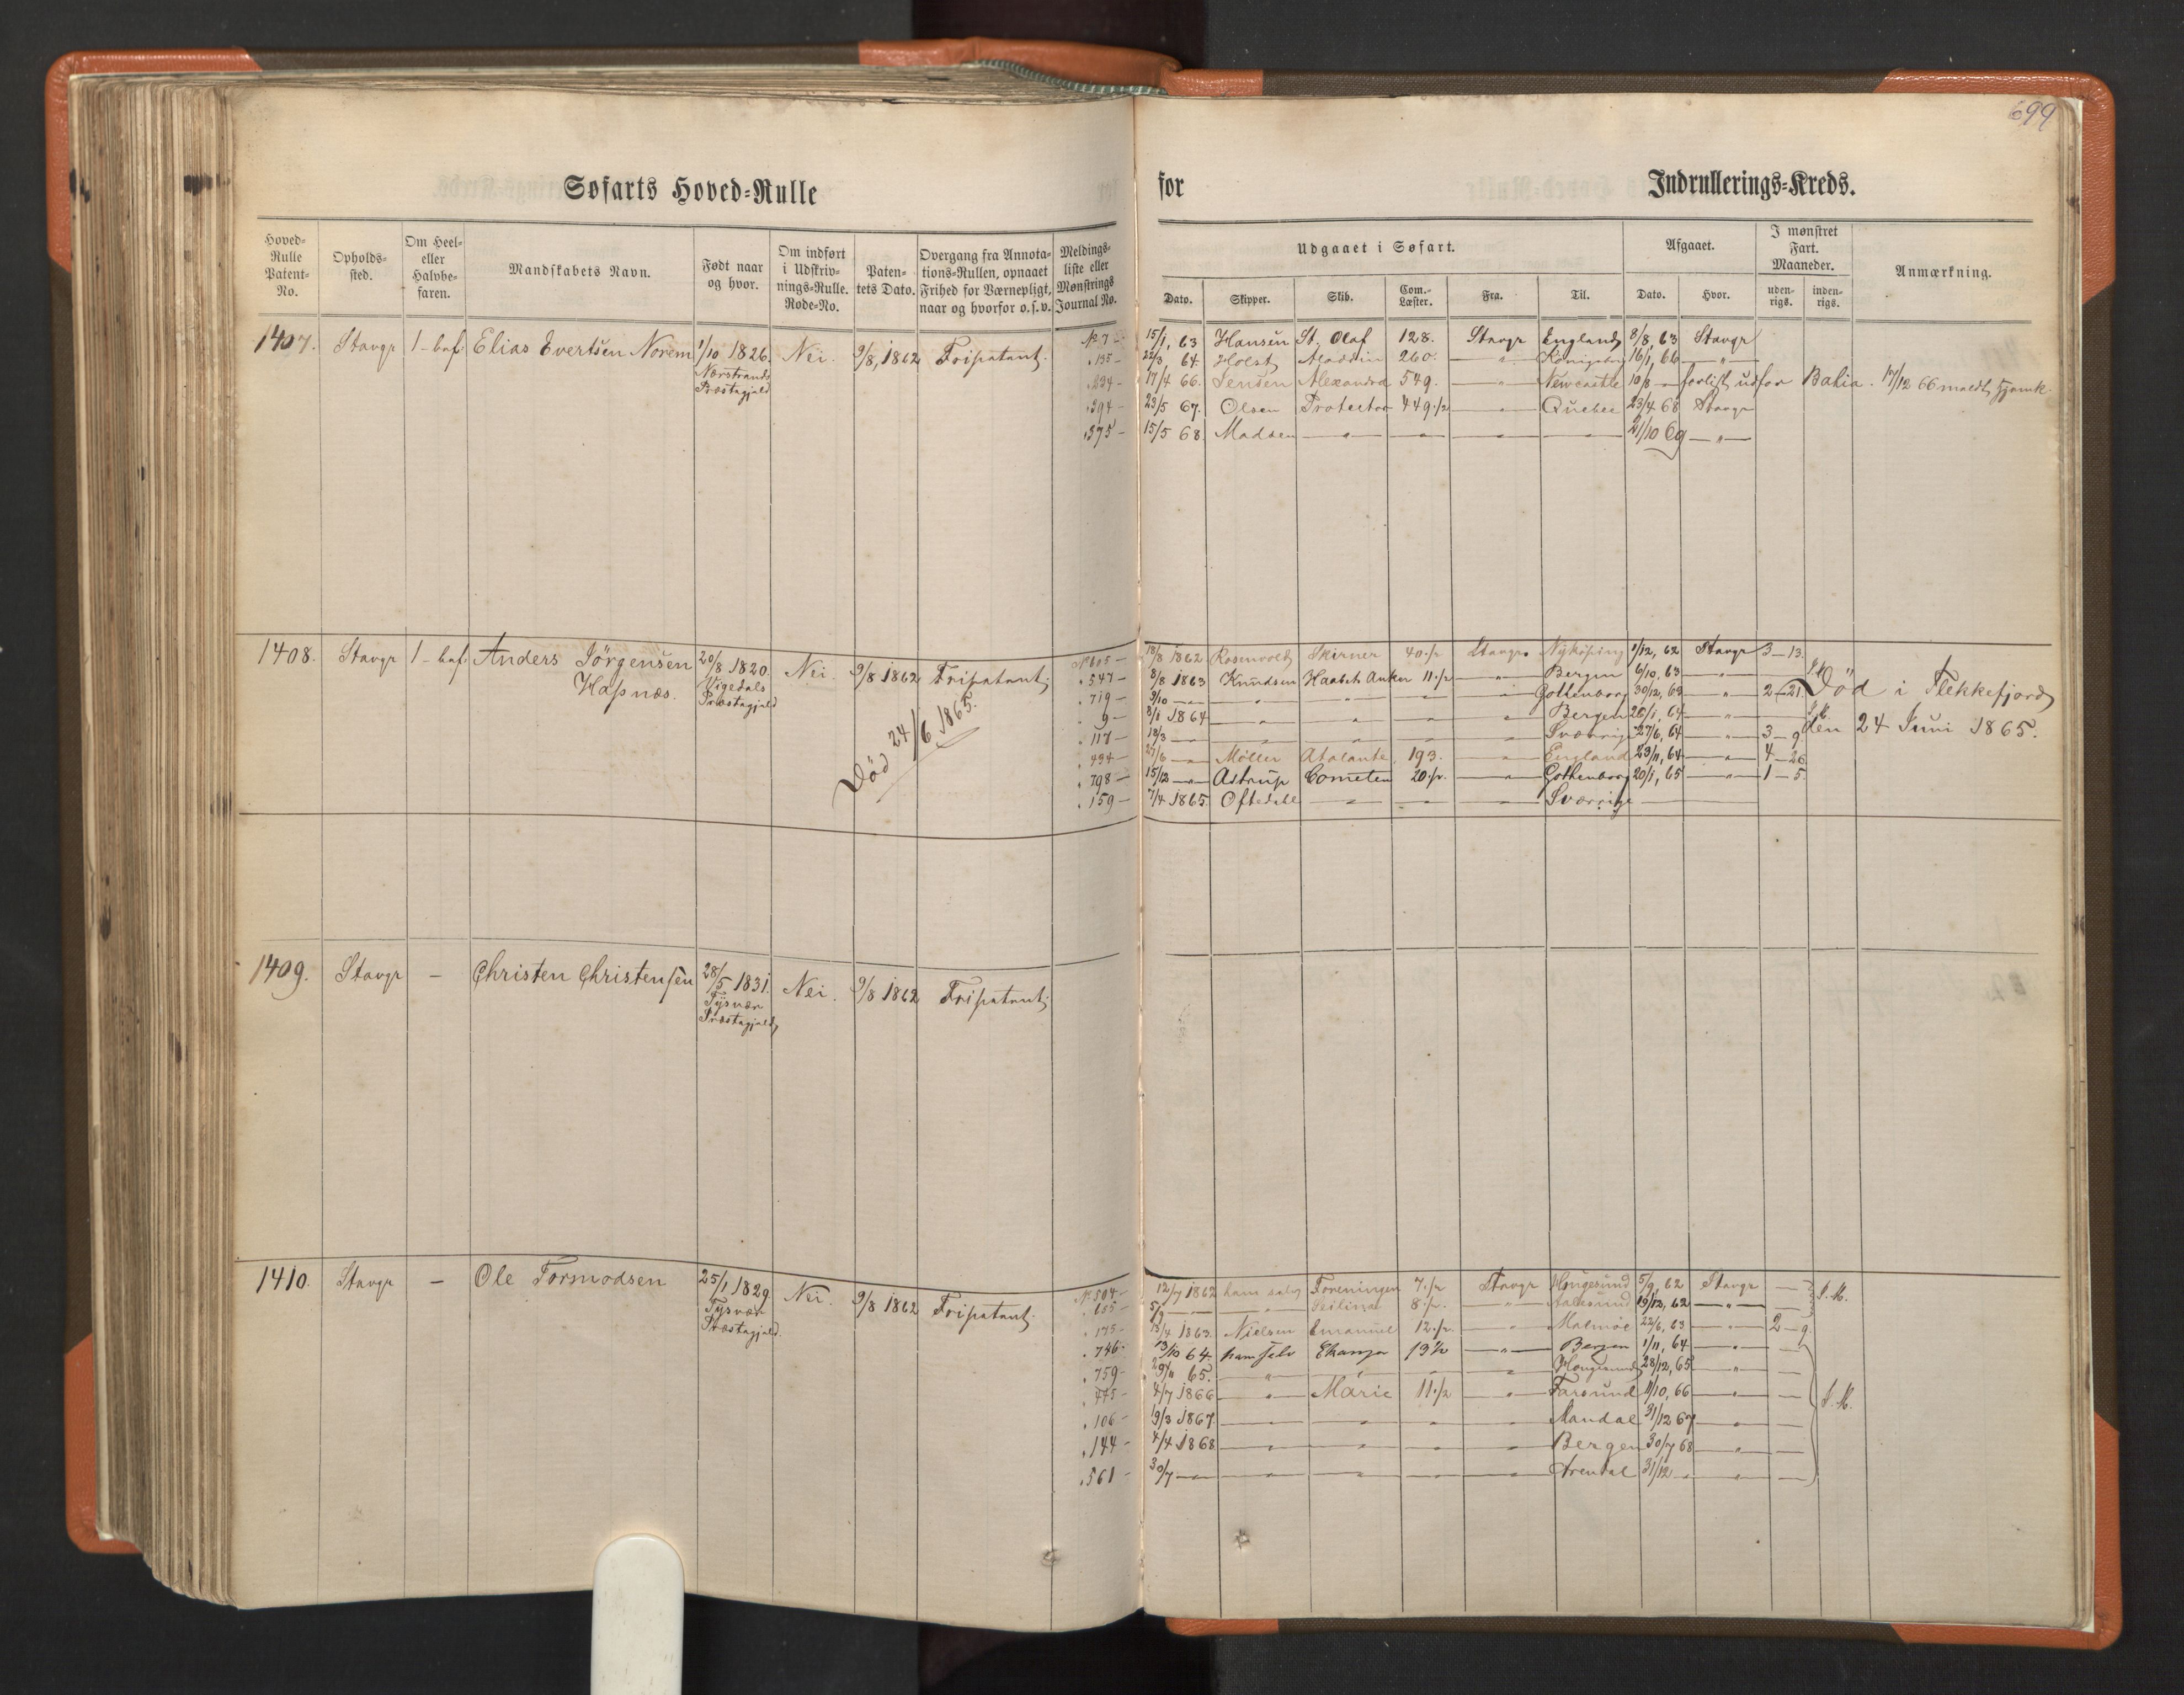 699
Søfarts Hoved-Rulle for Indrullerings-Kreds.
Hoved-Rulle Patent-No. | Opholds-sted. | Om Heel- eller Halvbe-faren. | Mandskabets Navn. | Født naar og hvor. | Om indført i Udskriv-nings-Rulle. Rode-No. | Paten-tets Dato. | Overgang fra Annota-tions-Rullen, opnaaet Frihed for Værnepligt, naar og hvorfor o.s.v. | Meldings-liste eller Mønstrings Journal No.
Udgaaet i Søfart. | Afgaaet. | I mønstret Fart. Maaneder. | Anmærkning.
Dato. | Skipper. | Skib. | Com.-Læster. | Fra. | Til. | Dato. | Hvor. | uden-rigs. | inden-rigs.
1407. Stavgr 1-bef. Elias Evertsen Norem 1/10 1826. Nei. 9/8, 1862 Fripatent.
Nærstrands
Præstegjeld
No 7 - 15/1, 63 Hansen St. Olaf 128. Stavgr England 8/8, 63 Stavgr
" 135 - 22/3 64. Holst Aladdin 260. — " — Königsbg 16/1, 66 — " —
" 234 - 17/4 66. Jensen Alexandra 549. — " — Newcastle 10/8 — forlist udfor Bahia. 17/12 66 meldt Hjemk.
" 294 - 23/5 67. Olsen Protector 449 1/2 — " — Quebec 23/4 68 Stavgr
" 375 - 15/5 68. Madsen — " — — " — — " — — " — 21/10 69 — " —
1408. Stavgr 1-bef. Anders Jörgensen 20/8 1820. Nei. 9/8 1862 Fripatent.
Hapnæs. Vigedals
Præstegjeld
Död 24/6 1865.
No 605 - 18/8 1862 Rosenvold Skirner 40 1/2 Stavgr Nyköping 1/12, 62 Stavgr 3-13.
" 547 - 8/8 1863 Knudsen Haabets Anker 11 1/2 — " — Bergen 6/10, 63 — " — I.M.
" 719 - 9/10 — " — — " — — " — Gottenborg 30/12, 63 — " — 2-21. Död i Flekkefjord
" 9 - 8/1 1864 — " — — " — — " — Bergen 26/1, 64 — " — I.M.
" 117 - 18/3 — " — — " — — " — Sverrig 27/6, 64 — " — 3-9. den 24 Juni 1865.
" 434 - 27/6 — Møller Atalanta 193. — " — England 23/11, 64 — " — 4-26
" 798 - 15/12 — Astrup Cometen 20 1/2 — " — Gothenborg 20/1, 65 — " — 1-5.
" 159 - 7/4 1865. Oftedahl — " — — " — — " — Sverrige —
1409. Stavgr - Christen Christensen 28/5 1831. Nei. 9/8 1862 Fripatent.
Tysvær
Præstegjeld
1410. Stavgr - Ole Tormodsen 25/1 1829. Nei. 9/8 1862 Fripatent.
Tysvær
Præstegjeld.
No 504 - 12/7 1862 ham selv Foreningen 7 1/2 Stavgr Hougesund 5/9, 62 Stavgr —
" 655 - 5/9 — " — 8 1/2 — " — Aalesund 19/12, 62 — " — — I.M.
" 175 - 18/4 1863. Nielsen Emanuel 12 1/2 — " — Malmöe 22/6, 63 — " — 2-9.
" 746 - 13/10 64. ham selv 13 1/2 — " — Bergen 1/11, 64 — " — —
" 759 - 29/11 65. — " — — " — — " — Hougesund 28/12, 65 — " — —
" 475 - 4/7 1866 — " — Marie 11 1/2 — " — Farsund 11/10, 66 — " — — I.M.
" 106 - 19/3 1867. — " — — " — — " — Mandal 31/12 67 — " — —
" 144 - 4/4 1868 — " — — " — — " — Bergen 30/7 68 — " — —
" 561 - 30/7 — " — — " — — " — Arendal 31/12 — " — —